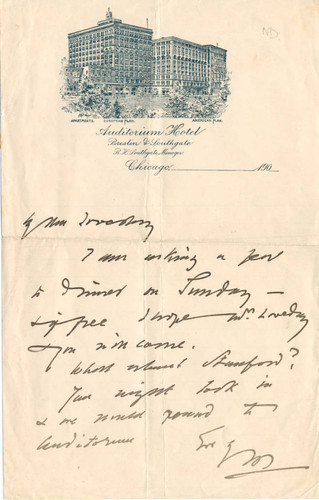 N.D.
APARTMENTS. EUROPEAN PLAN. AMERICAN PLAN.
Auditorium Hotel
Breslin & Southgate
R.H. Southgate, Manager
Chicago 190
My Loveday
I am asking a few
to dinner on Sunday —
& if free I hope Mrs. Loveday
& you will come.
What about Stanford?
You might look in
& we would round to
Auditorium